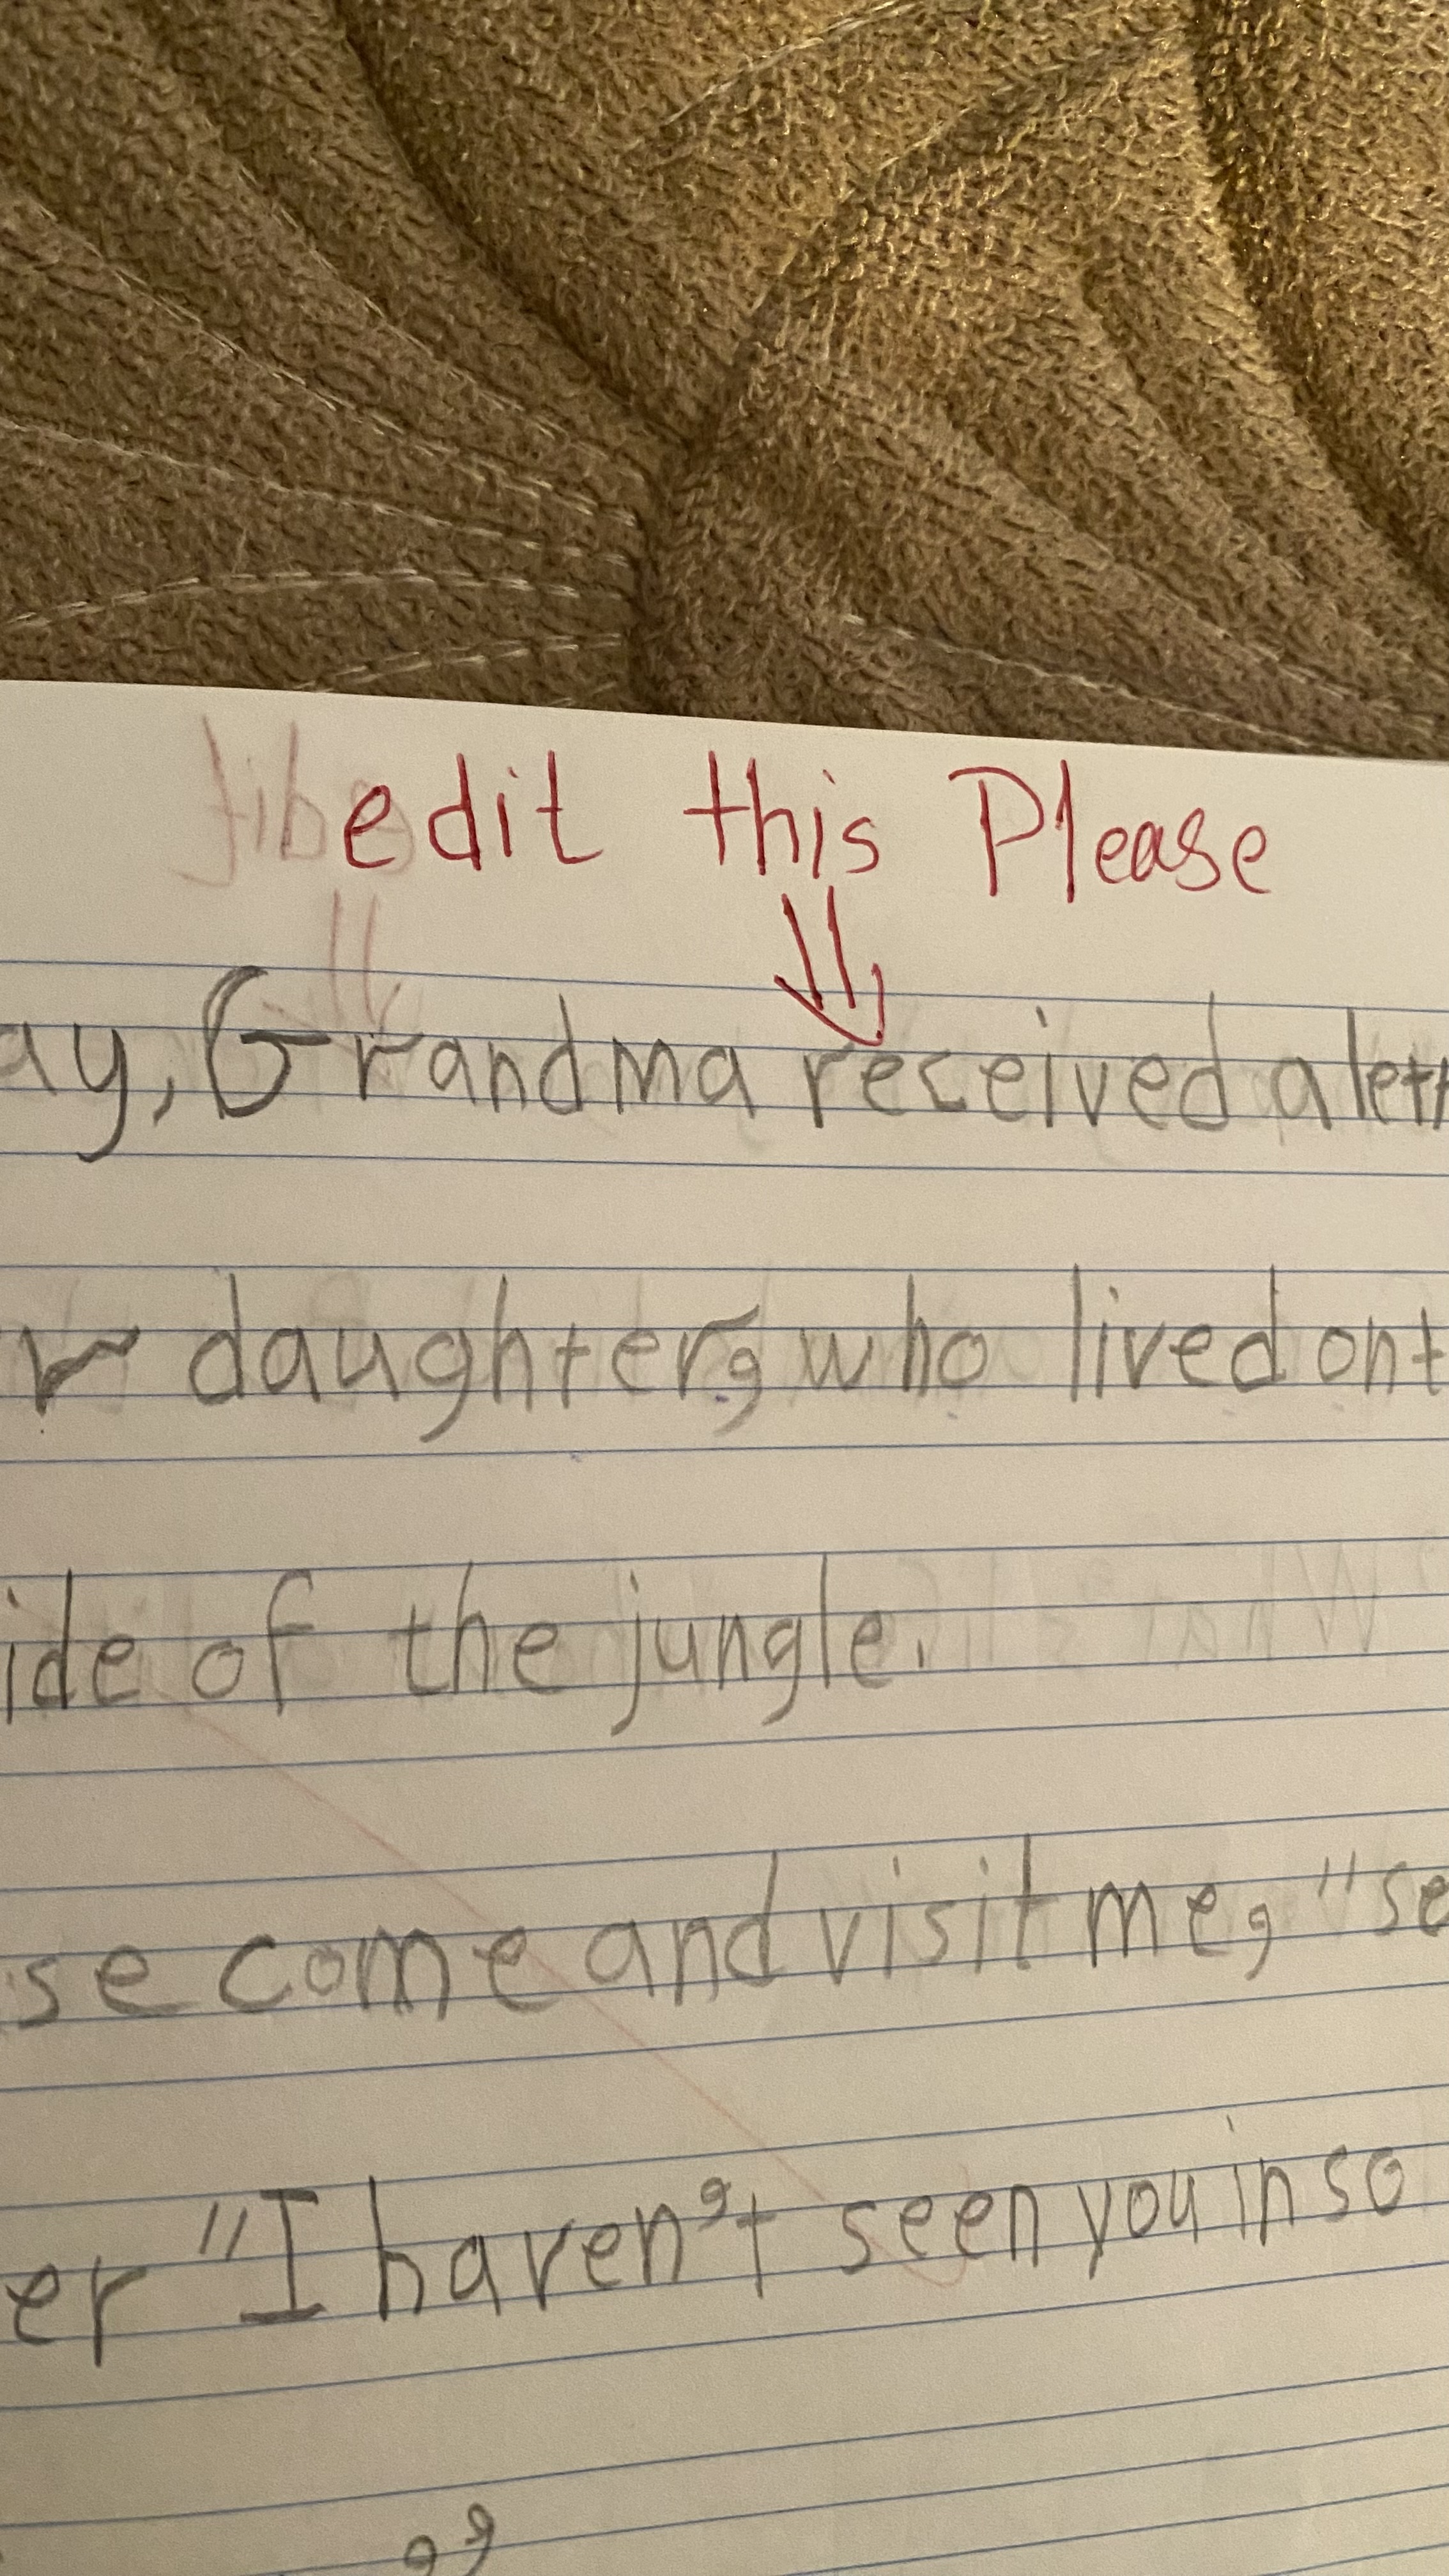 edit this Please
ay, Grandma received a lett
r daughter, who lived on t
ide of the jungle.
se come and visit me, "se
er "I haven't seen you in so